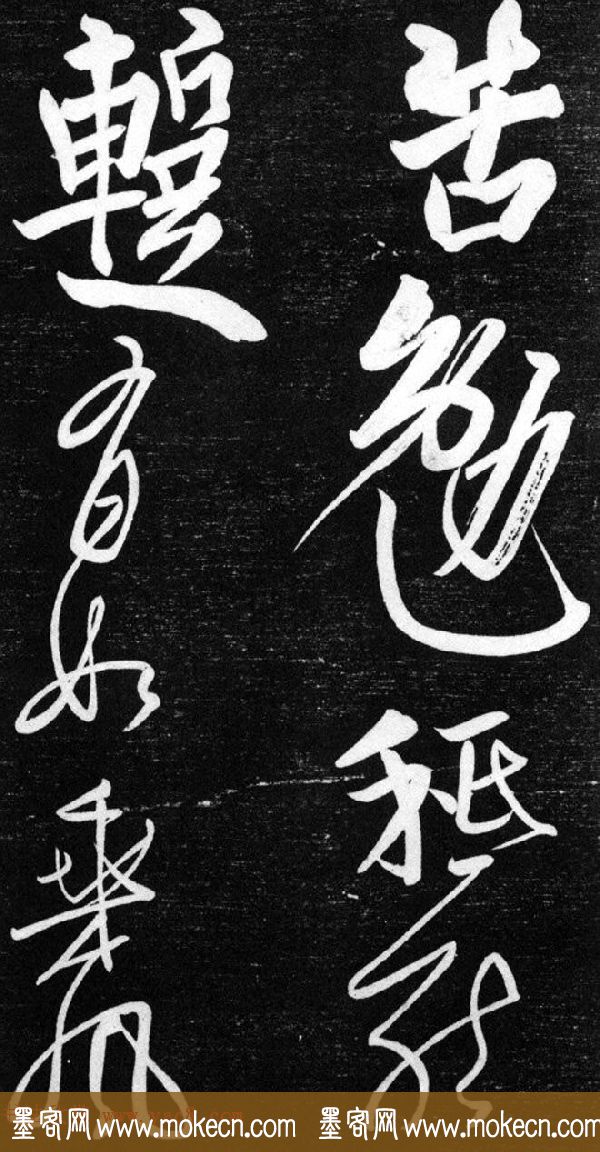 苦勉秪能
有如乘風
墨客网 www.mokecn.com 墨客网 www.mokecn.com